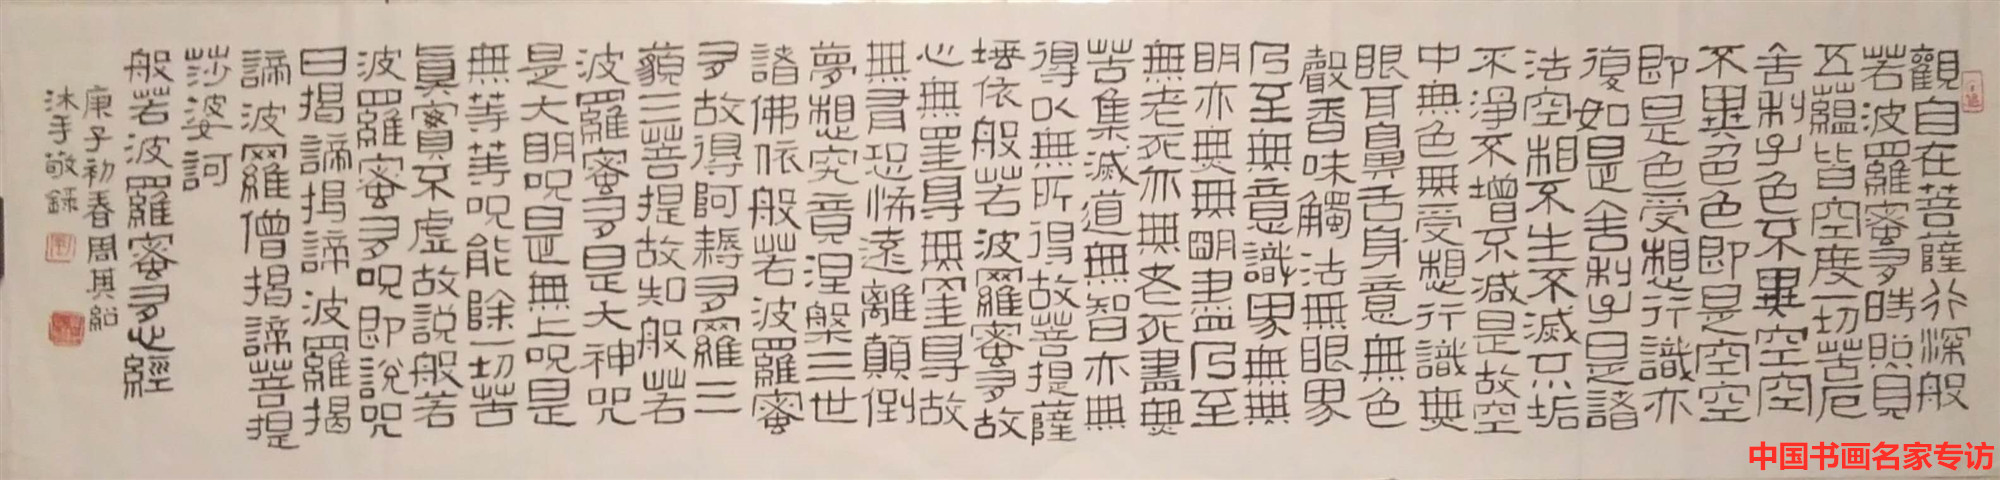 觀自在菩薩行深般
若波羅蜜多時照見
五蘊皆空度一切苦厄
舍利子色不異空空
不異色色即是空空
即是色受想行識亦
復如是舍利子是諸
法空相不生不滅不垢
不淨不增不減是故空
中無色無受想行識無
眼耳鼻舌身意無色
聲香味觸法無眼界
乃至無意識界無無
明亦無無明盡乃至
無老死亦無老死盡無
苦集滅道無智亦無
得以無所得故菩提薩
埵依般若波羅蜜多故
心無罣导無罣导故
無有恐怖遠離顛倒
夢想究竟涅槃三世
諸佛依般若波羅蜜
多故得阿耨多羅三
藐三菩提故知般若
波羅蜜多是大神咒
是大明咒是無上咒是
無等等咒能除一切苦
真實不虛故說般若
波羅蜜多咒即說咒
曰揭諦揭諦波羅揭
諦波羅僧揭諦菩提
莎婆訶
般若波羅蜜多心經
庚子初春周其
沐手敬錄
中国书画名家专访